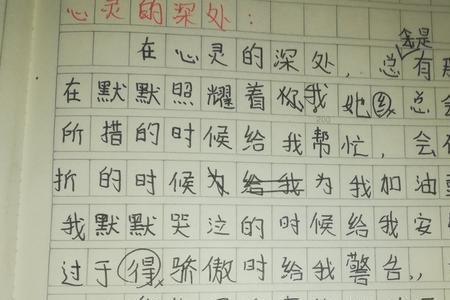 心灵的深处：
在心灵的深处，总有
在默默照耀着你我她总会
所措的时候给我帮忙，会
折的时候为我加油
我默默哭泣的时候给我安
过于得骄傲时给我警告，